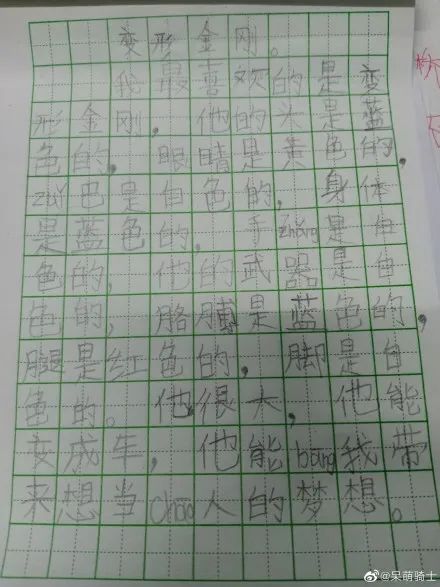 变形金刚。
我最喜欢的是变
形金刚，他的头是蓝
色的，眼睛是黄色的，
zuǐ巴是白色的，身体
是蓝色的，手zhǎng是白
色的，他的武器是白
色的，胳膊是蓝色的，
腿是红色的，脚是白
色的。他很大，他能
变成车，他能bāng我带
来想当Chāo人的梦想。
@呆萌骑士